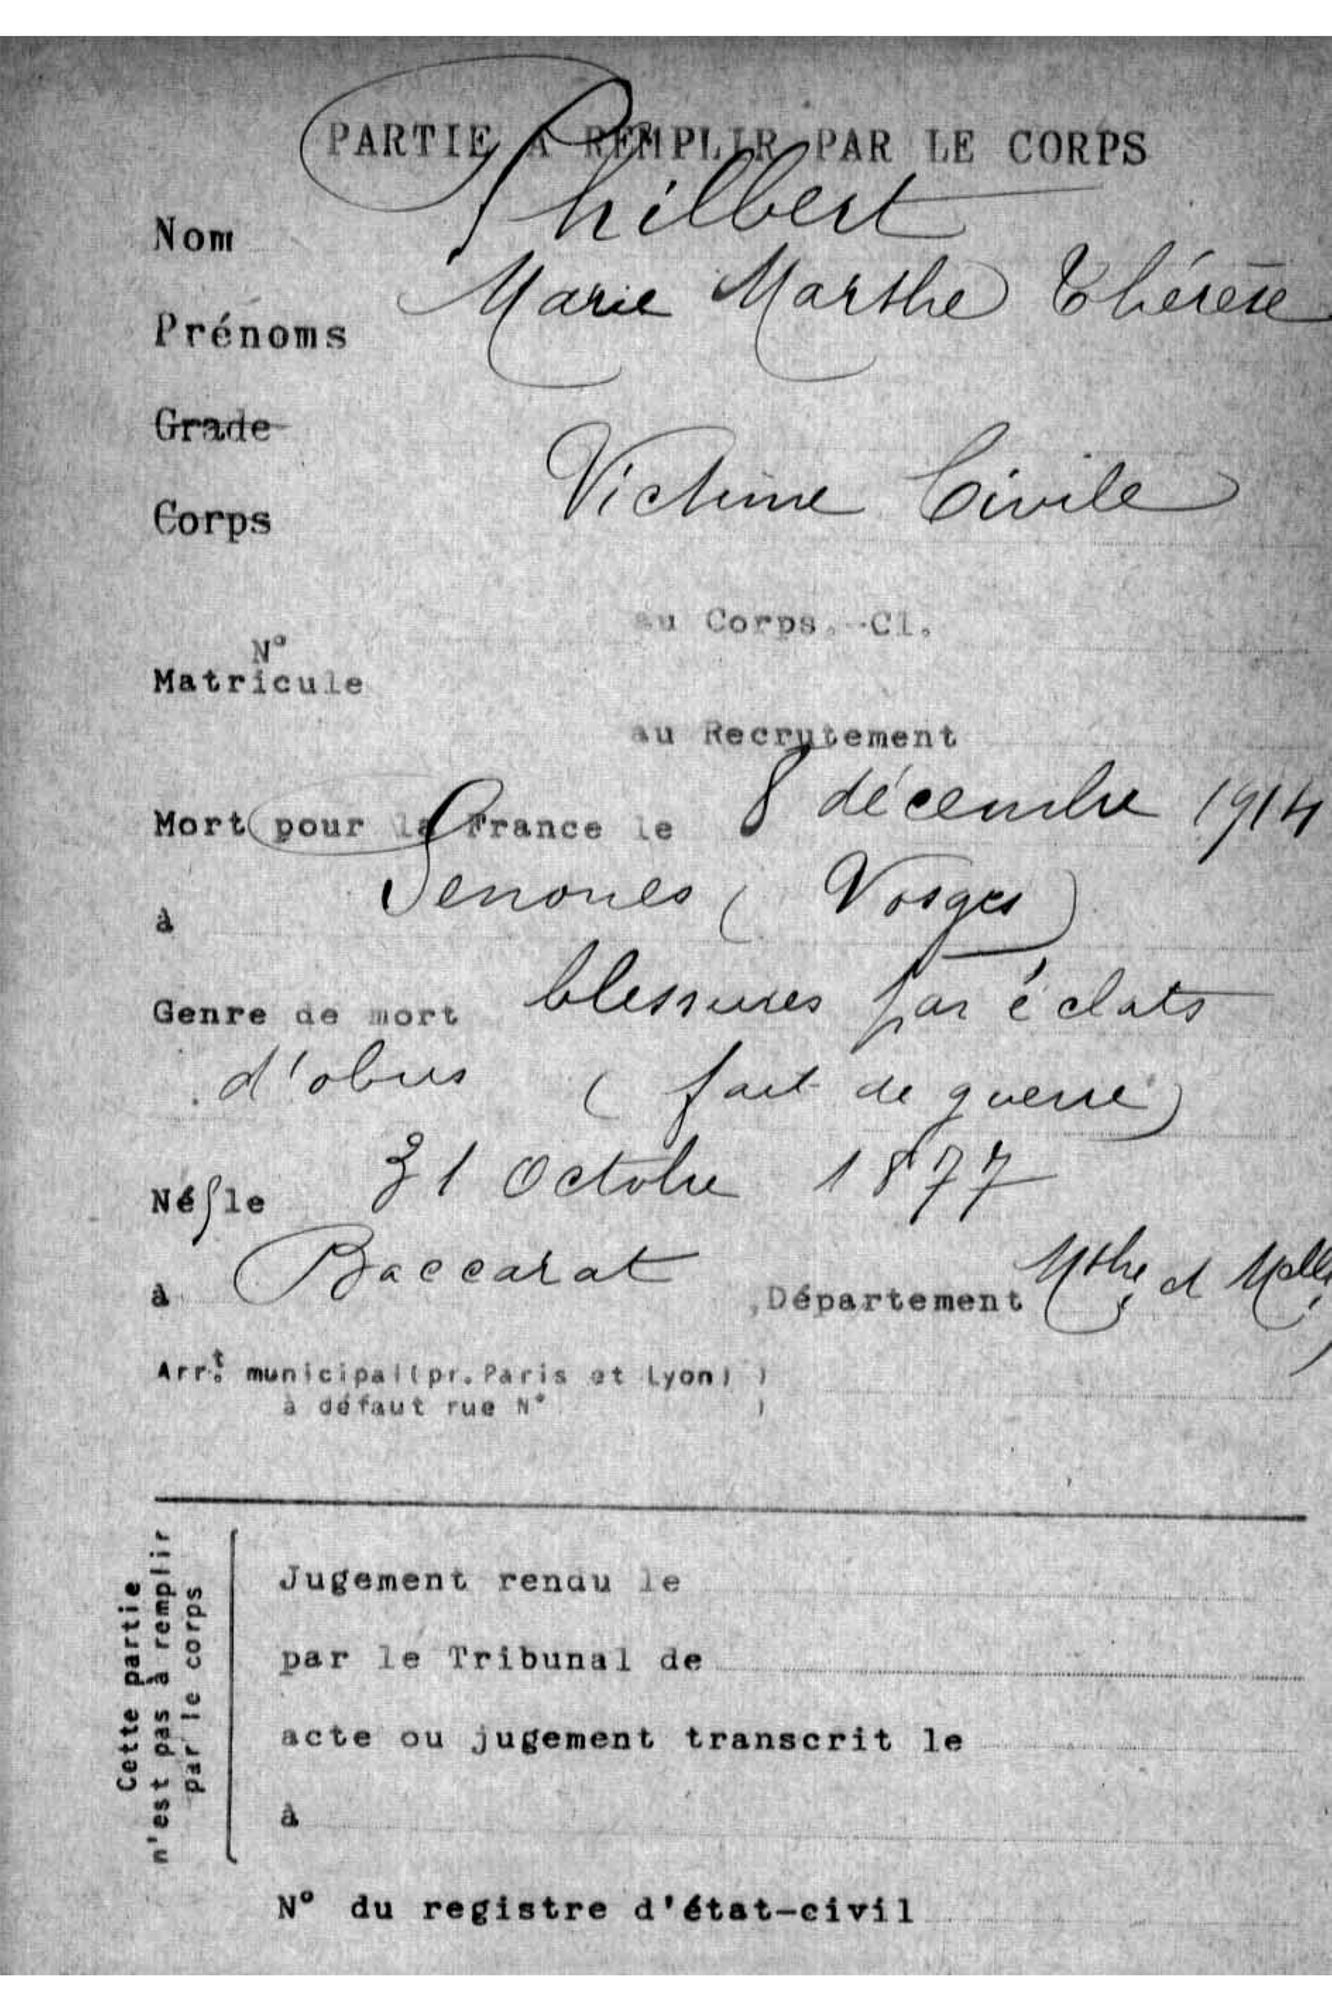 PARTIE A REMPLIR PAR LE CORPS
Nom Philbert
Prénoms Marie Marthe Thérèse
Grade
Corps Victime Civile
au Corps. - Cl.
N°
Matricule
au Recrutement
Mort pour la France le 8 décembre 1914
à Senones (Vosges)
Genre de mort blessures par éclats
d'obus (fait de guerre)
Né le 31 Octobre 1877
à Baccarat Département Mthe et Mlle
Arr.t municipal (pr. Paris et Lyon) )
à défaut rue N° )
Cette partie
n'est pas à remplir
par le corps
Jugement rendu le
par le Tribunal de
acte ou jugement transcrit le
à
N° du registre d'état-civil